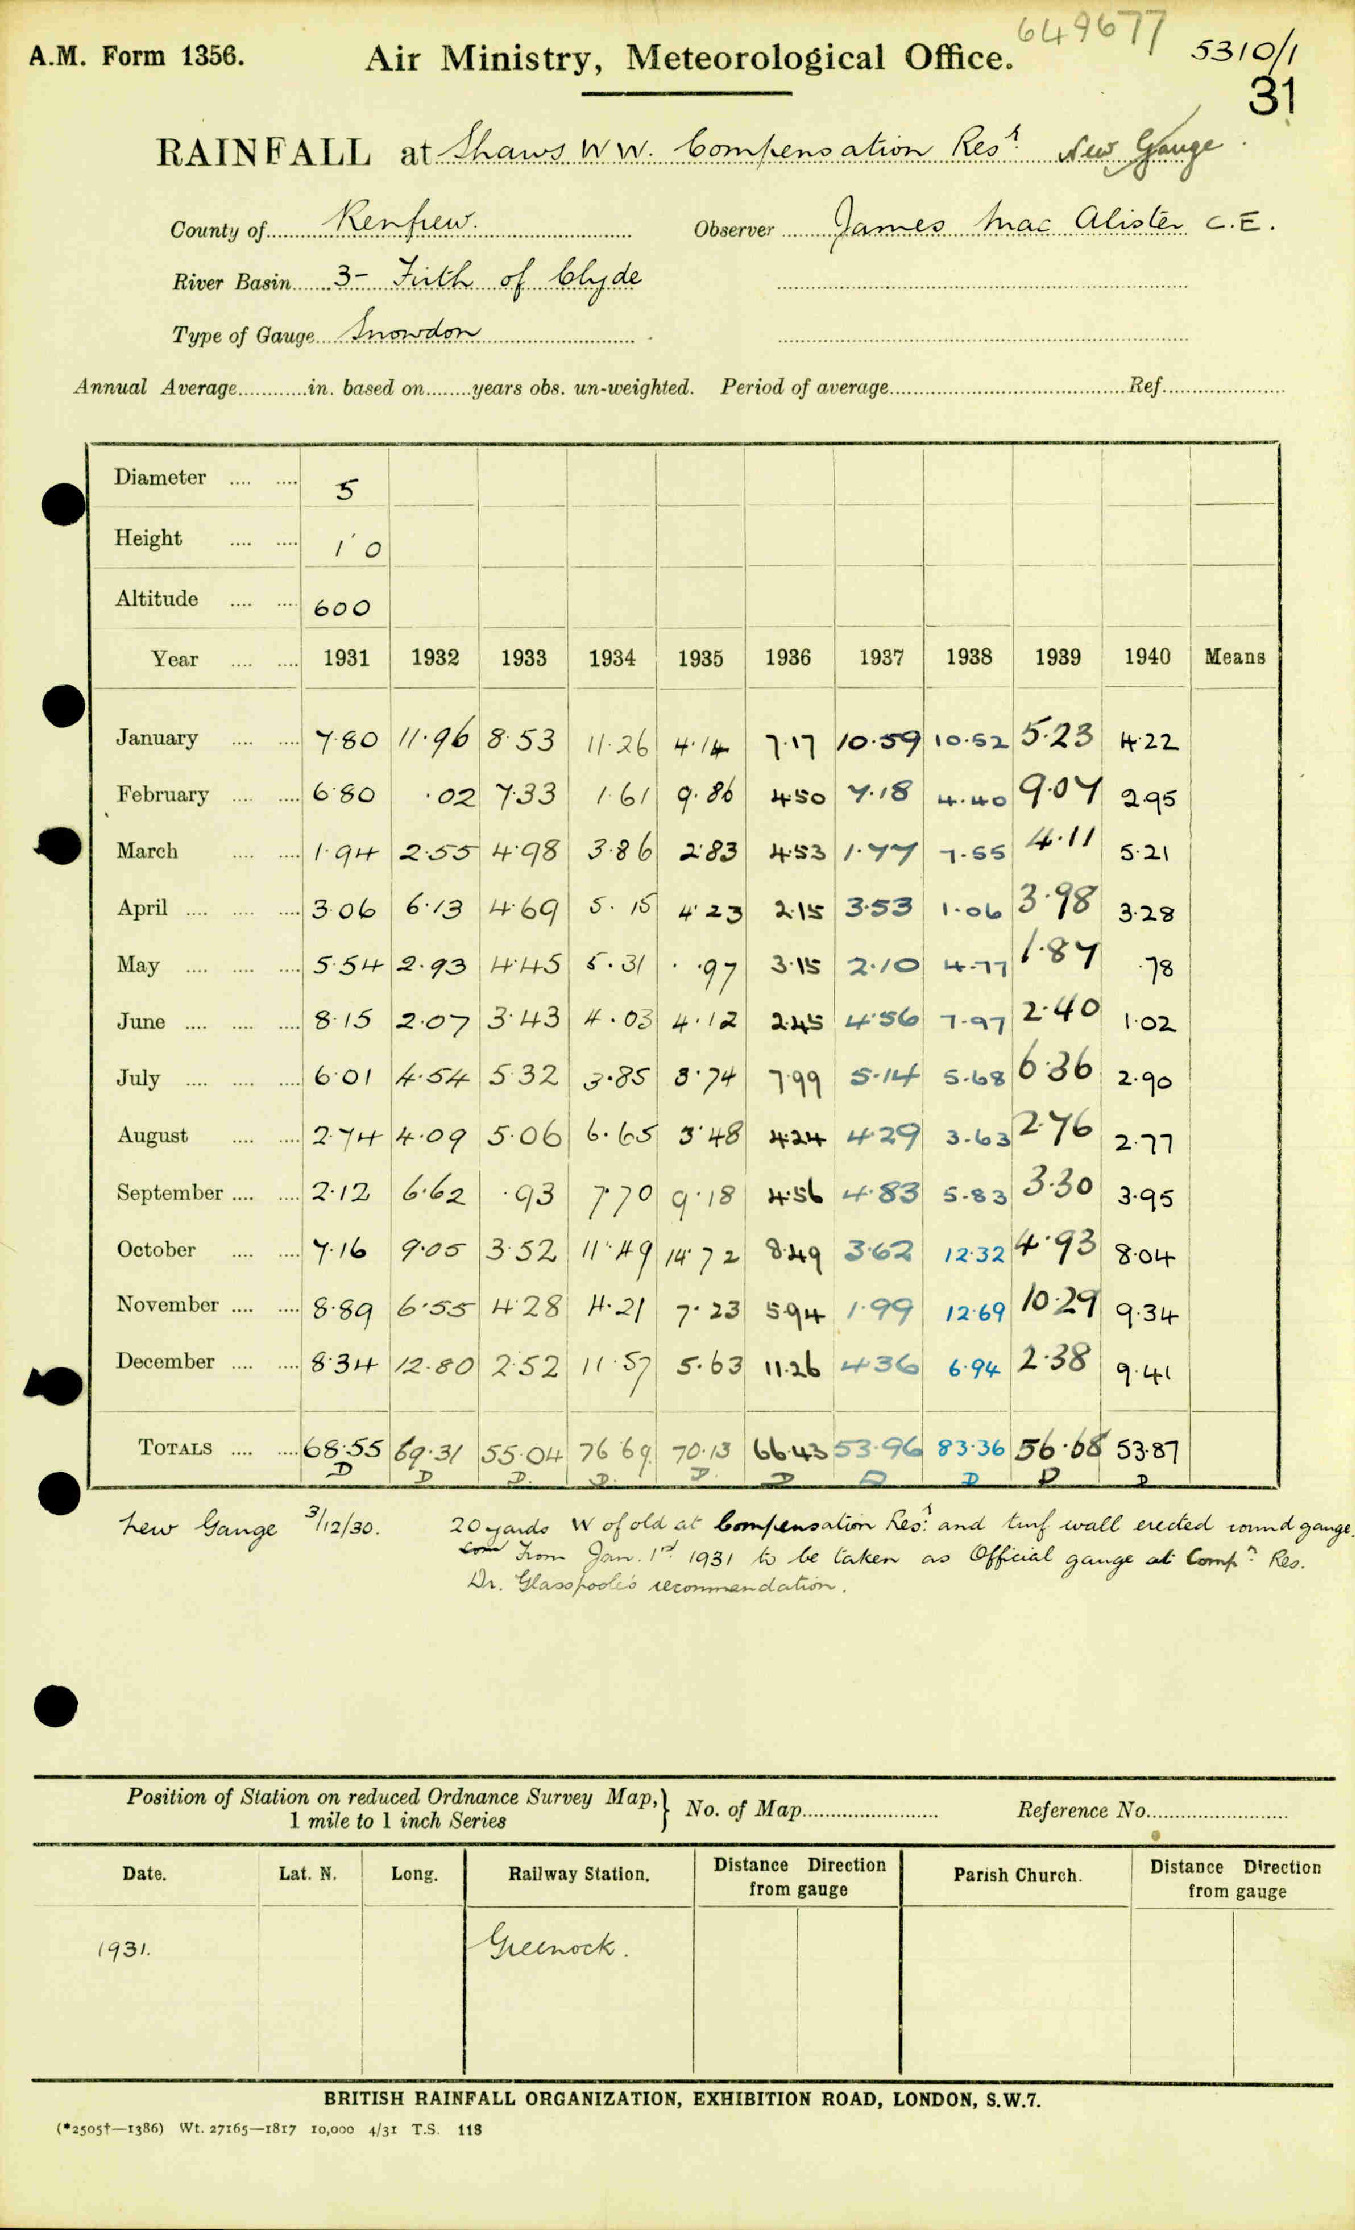 649677
A.M. Form 1356. Air Ministry, Meteorological Office. 5310/1
31
RAINFALL at Shaws W W. Compensation Resr. New Gauge
County of Renfrew. Observer James Mac Alister C.E.
River Basin 3- Firth of Clyde
Type of Gauge Snowdon
Annual Average in. based on years obs. un-weighted. Period of average Ref.
Diameter 5
Height 1' 0
Altitude 600
Year 1931 1932 1933 1934 1935 1936 1937 1938 1939 1940 Means
January 7.80 11.96 8.53 11.26 4.14 7.17 10.59 10.52 5.23 4.22
February 6.80 .02 7.33 1.61 9.86 4.50 7.18 4.40 9.07 2.95
March 1.94 2.55 4.98 3.86 2.83 4.53 1.77 7.55 4.11 5.21
April 3.06 6.13 4.69 5.15 4.23 2.15 3.53 1.06 3.98 3.28
May 5.54 2.93 4.45 5.31 .97 3.15 2.10 4.77 1.87 .78
June 8.15 2.07 3.43 4.03 4.12 2.45 4.56 7.97 2.40 1.02
July 6.01 4.54 5.32 3.85 3.74 7.99 5.14 5.68 6.36 2.90
August 2.74 4.09 5.06 6.65 3.48 4.24 4.29 3.63 2.76 2.77
September 2.12 6.62 .93 7.70 9.18 4.56 4.83 5.83 3.30 3.95
October 7.16 9.05 3.52 11.49 14.72 8.49 3.62 12.32 4.93 8.04
November 8.89 6.55 4.28 4.21 7.23 5.94 1.99 12.69 10.29 9.34
December 8.34 12.80 2.52 11.57 5.63 11.26 4.36 6.94 2.38 9.41
TOTALS 68.55 69.31 55.04 76.69 70.13 66.43 53.96 83.36 56.68 53.87
D D D. D. D. D D D D D
New Gauge 3/12/30. 20 yards W of old at Compensation Resr. and turf wall erected round gauge.
From Jan. 1st 1931 to be taken as Official gauge at Compn. Res.
Dr. Glasspoole's recommendation.
Position of Station on reduced Ordnance Survey Map,} No. of Map Reference No.
1 mile to 1 inch Series
Date. Lat. N. Long. Railway Station. Distance Direction from gauge Parish Church. Distance Direction from gauge
1931. Greenock.
BRITISH RAINFALL ORGANIZATION, EXHIBITION ROAD, LONDON, S.W.7.
(*2505†—1386) Wt. 27165—1817 10,000 4/31 T.S. 118